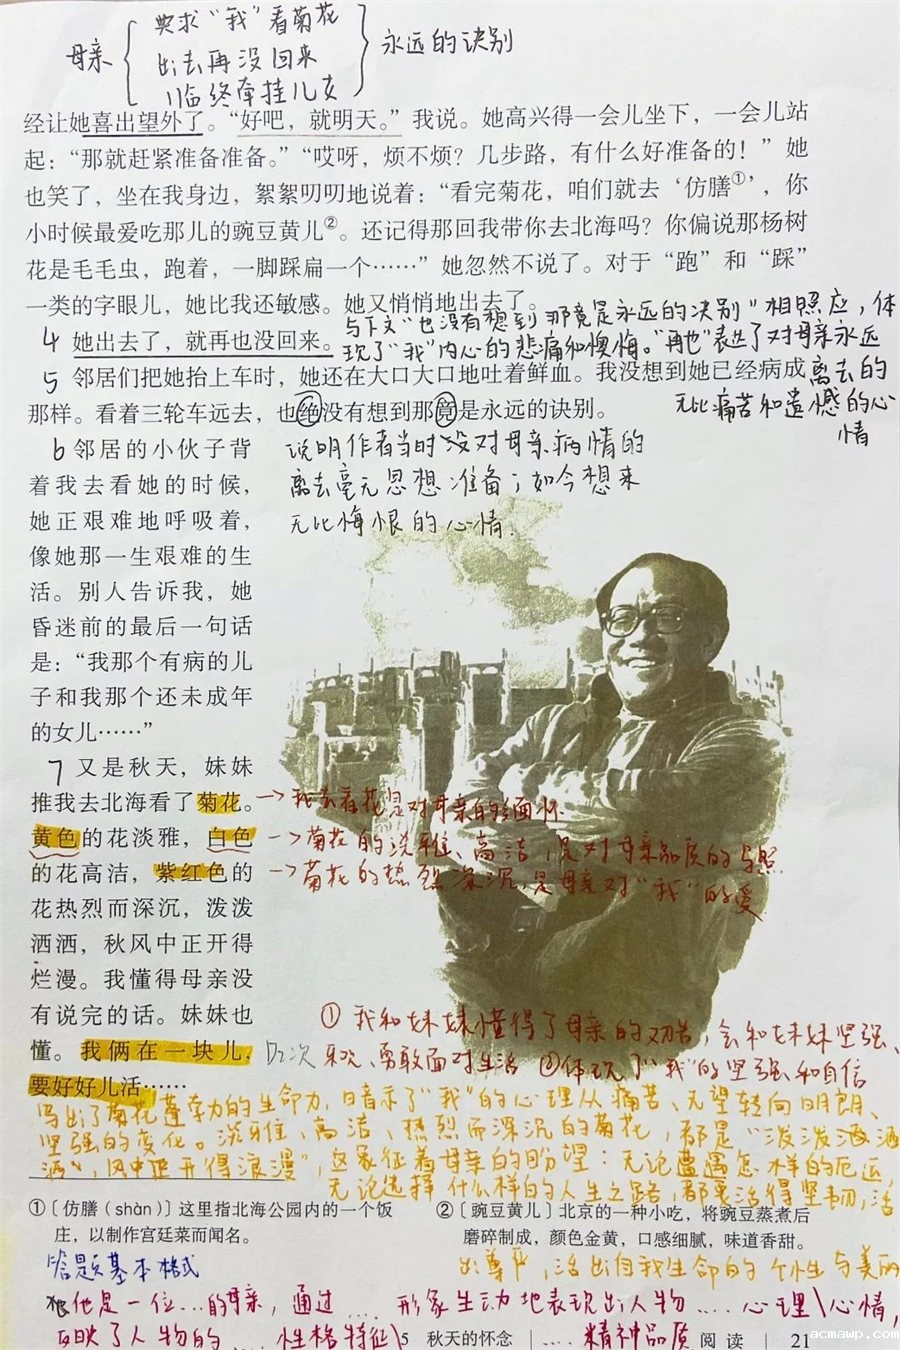 母亲
要求“我”看菊花
出去再没回来
临终牵挂儿女
永远的诀别
经让她喜出望外了。“好吧，就明天。”我说。她高兴得一会儿坐下，一会儿站
起：“那就赶紧准备准备。”“哎呀，烦不烦？几步路，有什么好准备的！”她
也笑了，坐在我身边，絮絮叨叨地说着：“看完菊花，咱们就去‘仿膳①’，你
小时候最爱吃那儿的豌豆黄儿②。还记得那回我带你去北海吗？你偏说那杨树
花是毛毛虫，跑着，一脚踩扁一个……”她忽然不说了。对于“跑”和“踩”
一类的字眼儿，她比我还敏感。她又悄悄地出去了。
4 她出去了，就再也没回来。
与下文“也没有想到那竟是永远的决别”相照应，体
现了“我”内心的悲痛和懊悔。“再也”表达了对母亲永远
离去的
无比痛苦和遗憾的心
情
5 邻居们把她抬上车时，她还在大口大口地吐着鲜血。我没想到她已经病成
那样。看着三轮车远去，也绝没有想到那竟是永远的诀别。
说明作者当时没对母亲病情的
离去毫无思想准备；如今想来
无比悔恨的心情.
6 邻居的小伙子背
着我去看她的时候，
她正艰难地呼吸着，
像她那一生艰难的生
活。别人告诉我，她
昏迷前的最后一句话
是：“我那个有病的儿
子和我那个还未成年
的女儿……”
7 又是秋天，妹妹
推我去北海看了菊花。
→我去看花是对母亲的缅怀
黄色的花淡雅，白色
→菊花的淡雅、高洁，是对母亲品质的写照
的花高洁，紫红色的
→菊花的热烈深沉，是母亲对“我”的爱
花热烈而深沉，泼泼
洒洒，秋风中正开得
烂漫。我懂得母亲没
有说完的话。妹妹也
懂。我俩在一块儿，
要好好儿活……
① 我和妹妹懂得了母亲的，会和妹妹坚强、
乐观、勇敢面对生活 ②体现了“我”的坚强和自信
写出了菊花蓬勃的生命力，暗示了“我”的心理从痛苦、无望转向明朗、
坚强的变化。淡雅、高洁、热烈而深沉的菊花，都是“泼泼洒洒
洒，风中正开得浪漫”，这象征着母亲的盼望：无论遭遇怎样的厄运，
无论选择什么样的人生之路，都要活得坚韧，活
出尊严，活出自我生命的个性与美丽
①〔仿膳（shàn）〕这里指北海公园内的一个饭
庄，以制作宫廷菜而闻名。
②〔豌豆黄儿〕北京的一种小吃，将豌豆蒸煮后
磨碎制成，颜色金黄，口感细腻，味道香甜。
答题基本格式
他是一位…的母亲，通过…形象生动地表现出人物…心理\心情，
反映了人物的…性格特征\…精神品质
5 秋天的怀念 | 阅读 | 21
acmawp.com